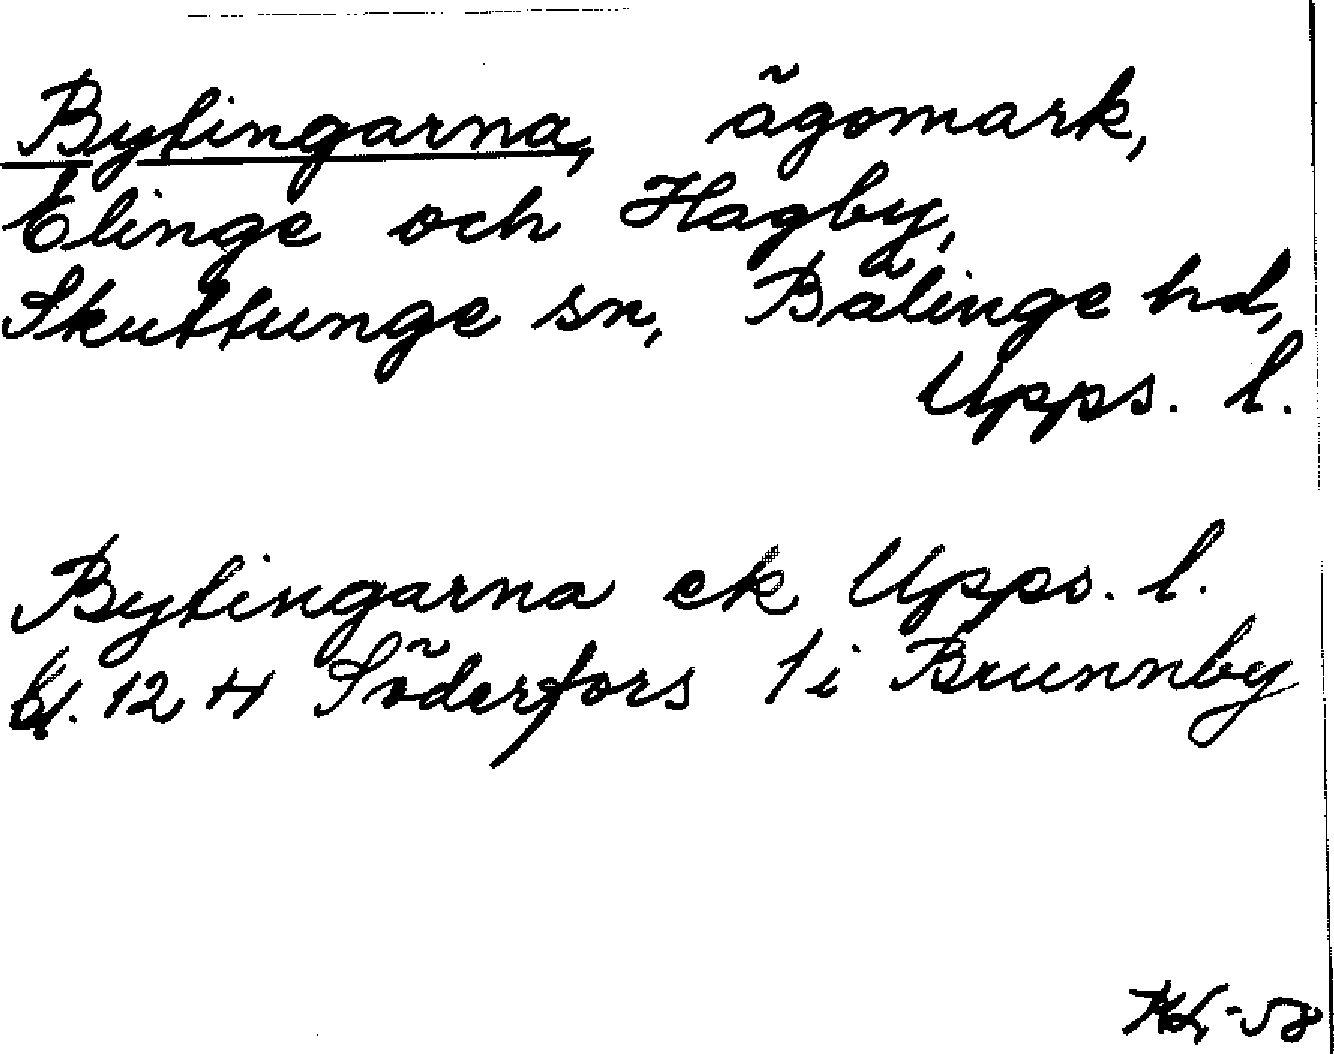 Bylingarna, ägomark,
Elinge och Hagby,
Skuttunge sn, Bälinge hd,
Upps. l.
Bylingarna ek Upps. l.
bl. 12 H Söderfors 1 i Brunnby
-58